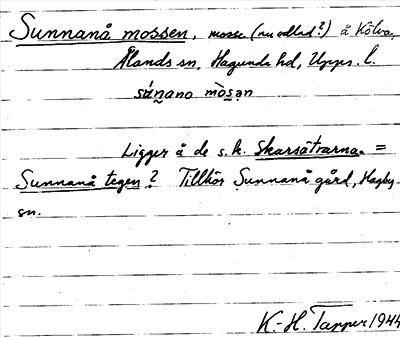 Sunnanå mossen, mosse (nu odlad?) å Kölva,
Ålands sn, Hagunda hd, Upps. l.
súnano mòsən
Ligger å de s. k. Skarsätrarna. =
Sunnanå tegen? Tillhör Sunnanå gård, Hagby
sn.
K.-H. Tapper 1944